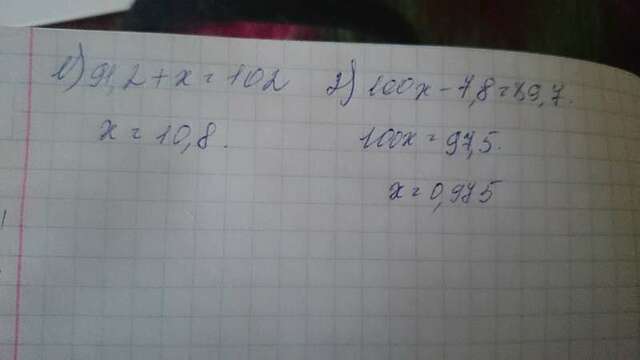 1) 91,2 + x = 102
x = 10,8.
2) 100x - 7,8 = 89,7.
100x = 97,5.
x = 0,975